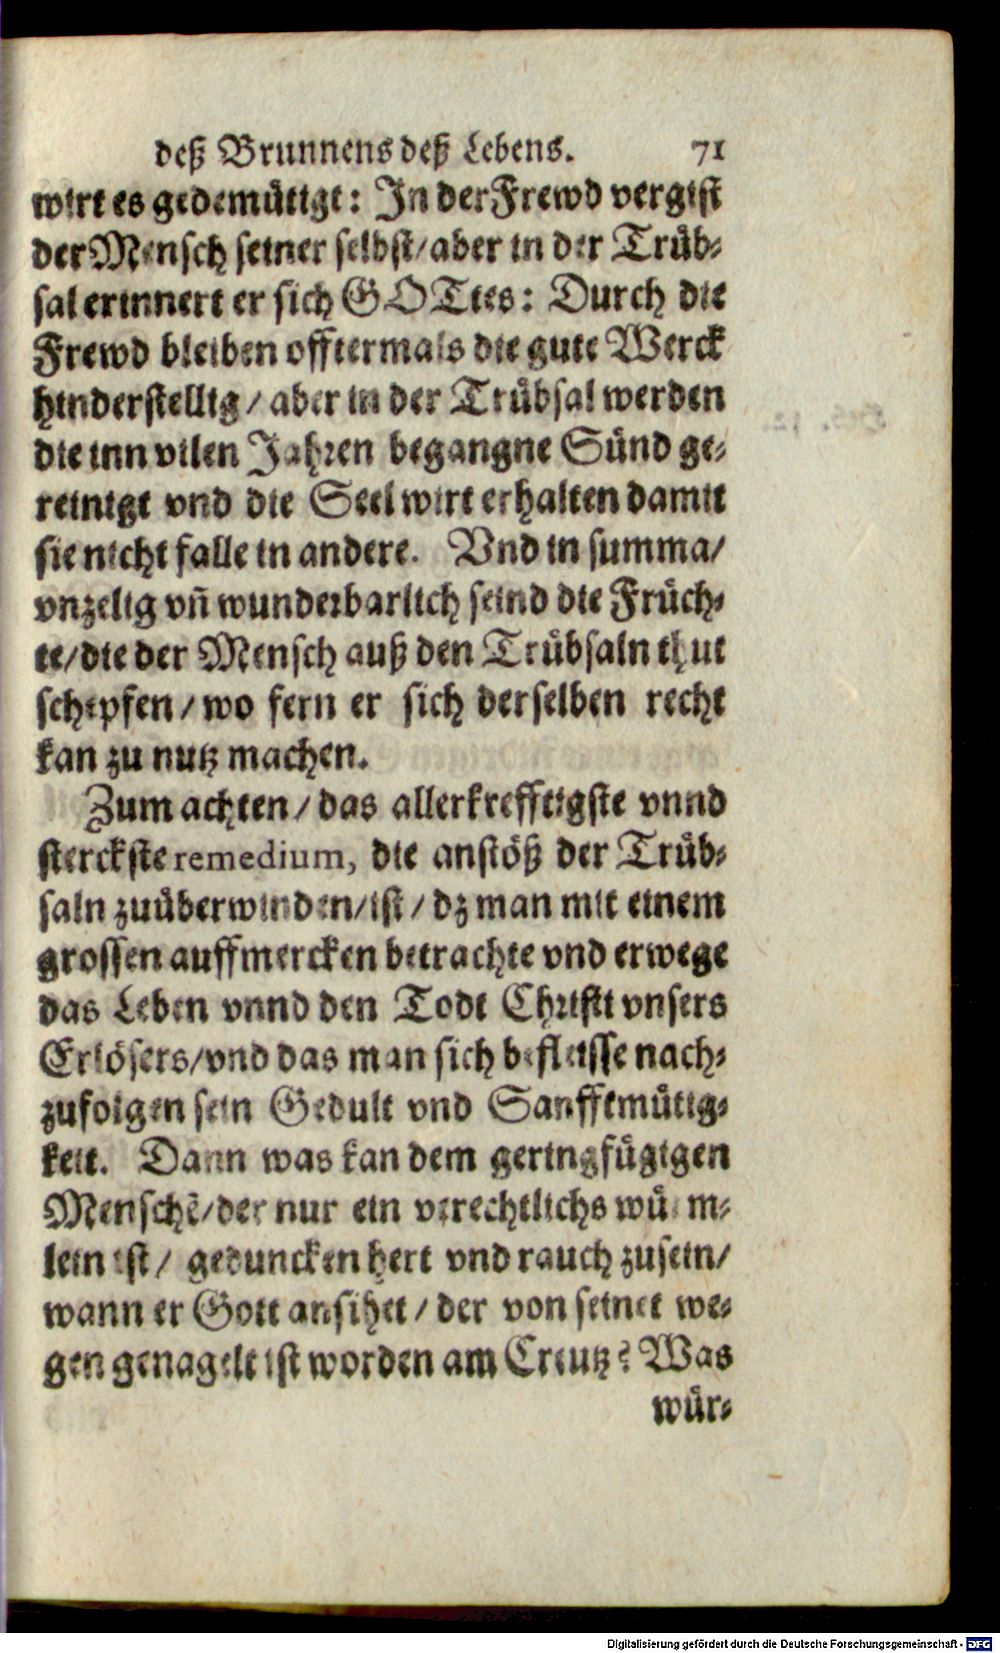 deß Brunnens deß Lebens. 71
wirt es gedemütigt: In der Frewd vergist
der Mensch seiner selbst/aber in der Trüb-
sal erinnert er sich GOTtes: Durch die
Frewd bleiben offtermals die gute Werck
hinderstellig/ aber in der Trübsal werden
die inn vilen Jahren begangne Sünd ge-
reinigt vnd die Seel wirt erhalten damit
sie nicht falle in andere. Vnd in summa/
vnzelig vñ wunderbarlich seind die Früch-
te/die der Mensch auß den Trübsaln thut
schepfen/ wo fern er sich derselben recht
kan zu nutz machen.
Zum achten/ das allerkrefftigste vnnd
sterckste remedium, die anstöß der Trüb-
saln zuüberwinden/ist/ dz man mit einem
grossen auffmercken betrachte vnd erwege
das Leben vnnd den Todt Christi vnsers
Erlösers/vnd das man sich befleisse nach-
zufolgen sein Gedult vnd Sanfftmütig-
keit. Dann was kan dem geringfügigen
Menschē/der nur ein verechtlichs würm-
lein ist/ geduncken hert vnd rauch zusein/
wann er Gott ansihet/ der von seinet we-
gen genagelt ist worden am Creutz? Was
wür-
Digitalisierung gefördert durch die Deutsche Forschungsgemeinschaft - DFG